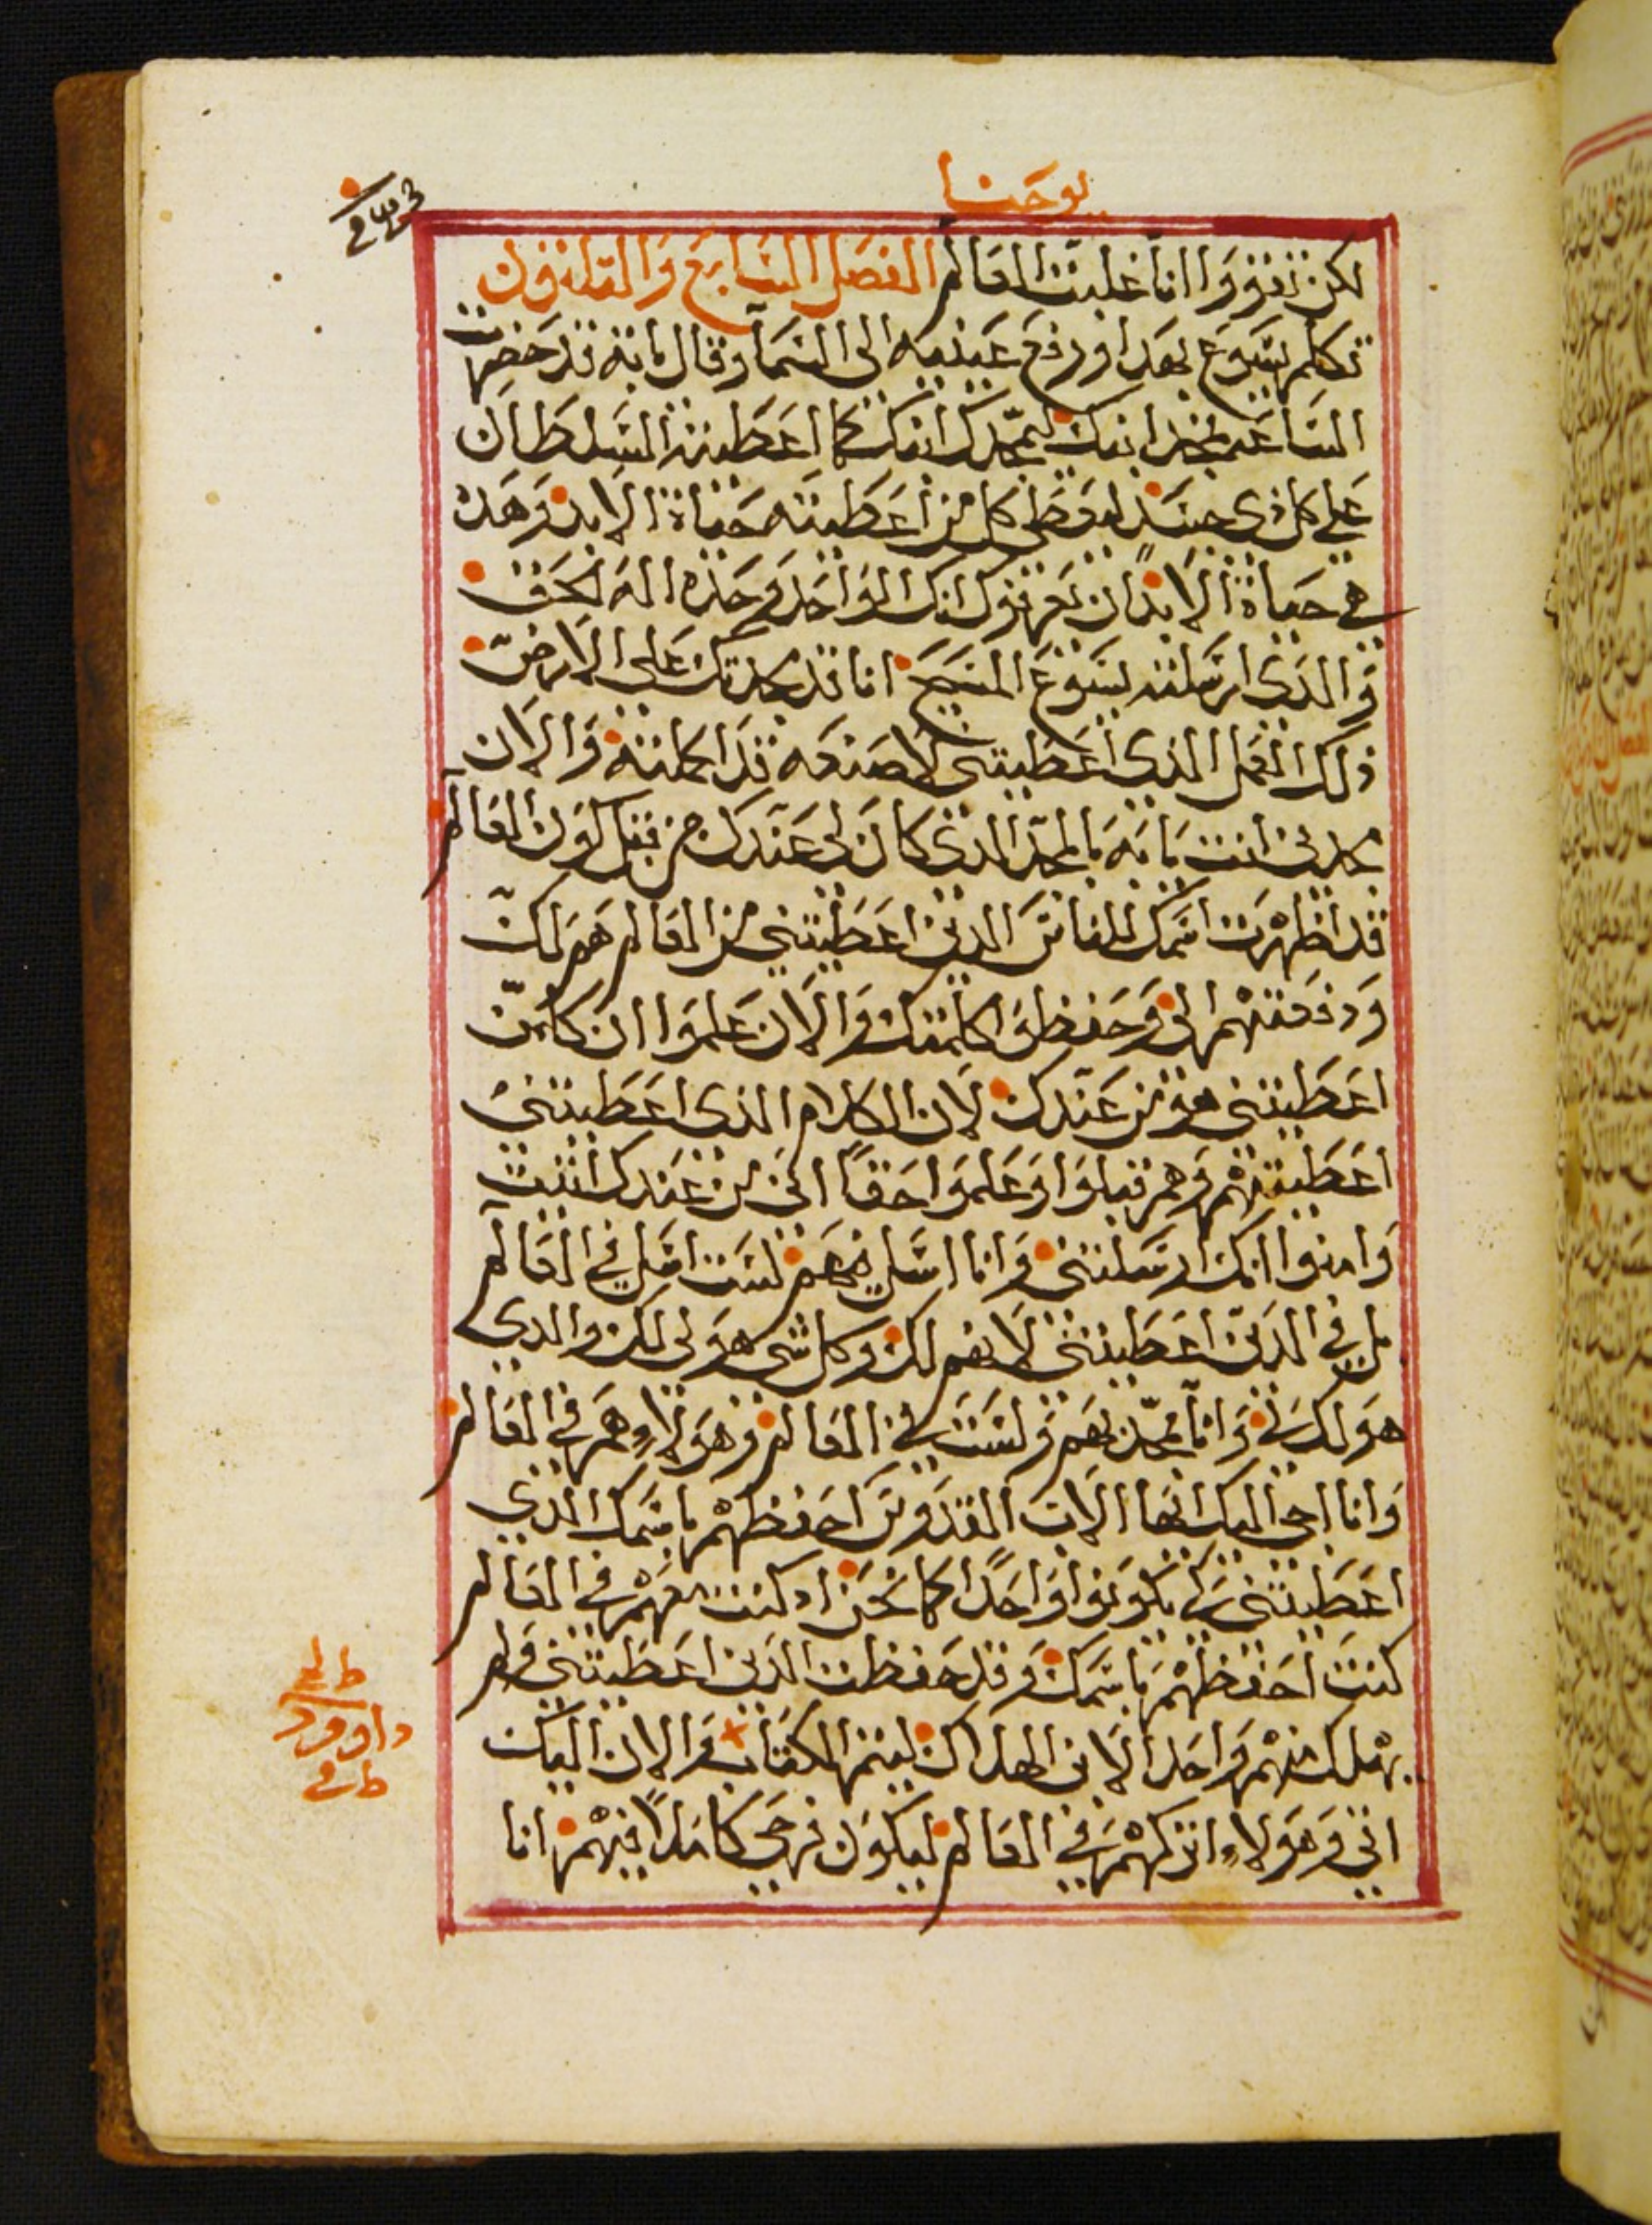 يوحنا
لكن تقووا انا غلبت العالم الفصل السابع والثلاثون
تكلم يسوع بهدا ورفع عينيه الى السما وقال يابة قد حضرت
الساعه مجد ابنك ليمجدك ابنك كما اعطيته السلطان
على كل ذي جسد ليعطي كل من اعطيته حياة الابد وهده
هي حياة الابد ان يعرفوك انك الواحد وحده اله الحق
والدى ارسلته يسوع المسيح انا قد مجدتك على الارض
ذلك العمل الذى اعطيتني لاصنعه قد اكملته والان
مجدني انت يابه بالمجد الدى كان لي عندك من قبل كون العالم
قد اظهرت اسمك للناس الدين اعطيتني من العالم هم لك
ودفعتهم الي وحفظوا كلمتك والان علموا ان كلمن
اعطيتني هو من عندك لان الكلام الذى اعطيتني
اعطيتهم وهم قبلوا وعلموا حقاً انى من عندك اتيت
وامنوا انك ارسلتني وانا اسل فيهم لست اسل في العالم
بل في الدين اعطيتني لانهم لك وكل شى هو لى لك والدي
هو لك لي وانا ممجد بهم ولست في العالم وهولاء هم في العالم
وانا اجى اليك ايها الاب القدوس احفظهم باسمك الدي
اعطيتني كي يكونوا واحدًا كما نحن اد كنت معهم في العالم
كنت احفظهم باسمك وقد حفظت الدين اعطيتني ولم
يهلك منهم واحد الا ابن الهلاك ليتم الكتاب والان اليك
اتي وهولاء اتركهم في العالم ليكون فرحي كاملاً فيهم انا
داوود